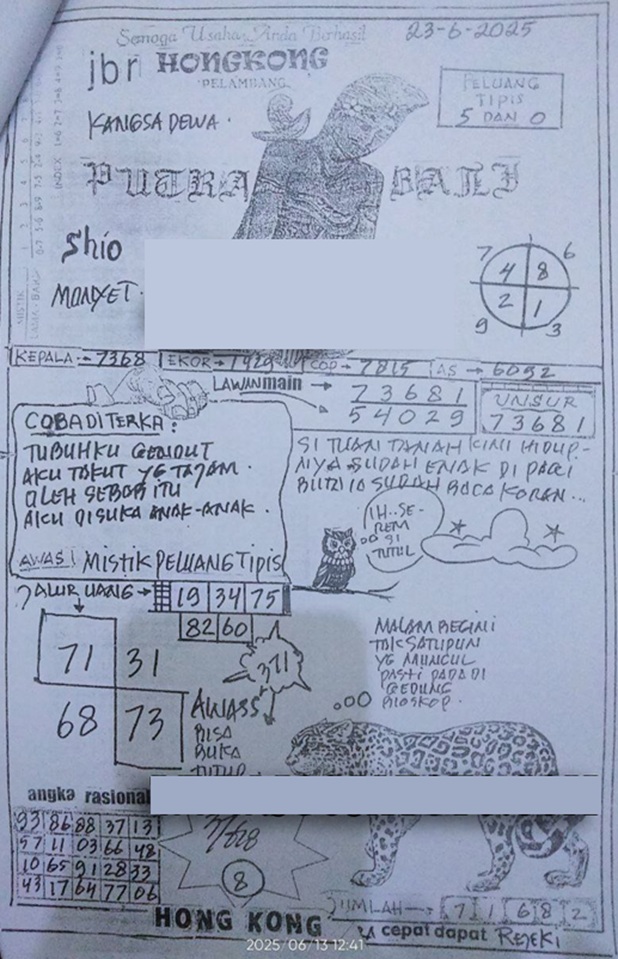 Semoga Usaha Anda Berhasil
23-6-2025
jbr HONGKONG
PELAMBANG
PELUANG
TIPIS
5 DAN 0
KANGSA DEWA.
PUTRA BALI
INDEX
Shio
MONYET.
7 6
4 8
2 1
9 3
KEPALA → 7368 EKOR → 1929 COP → 7815 AS → 6092
LAWANmain → 73681
54029
UNSUR
73681
COBA DITERKA:
TUBUHKU GENDUT
AKU TAKUT YG TAJAM.
OLEH SEBAB ITU
AKU DISUKA ANAK-ANAK.
SI TUAN TANAH KINI HIDUP-
NYA SUDAH ENAK DI PAGI
BUTA IA SUDAH BACA KORAN...
IH..SE-
REM
SI
TUTUL
AWAS! MistiK PELUANG TIPIS
JALUR UANG → 19 34 75
82 60
371
71 31
68 73
AWASS
BISA
BUKA
TUTUP
MALAM BEGINI
TAK SATUPUN
YG MUNCUL
PASTI PADA DI
GEDUNG
BIOSKOP.
angka rasional
93 86 88 37 13
57 11 03 66 48
10 65 91 28 33
43 17 64 77 06
8
JUMLAH → 7 1 6 8 2
HONG KONG
cepat dapat REJEKI
2025/06/13 12:41